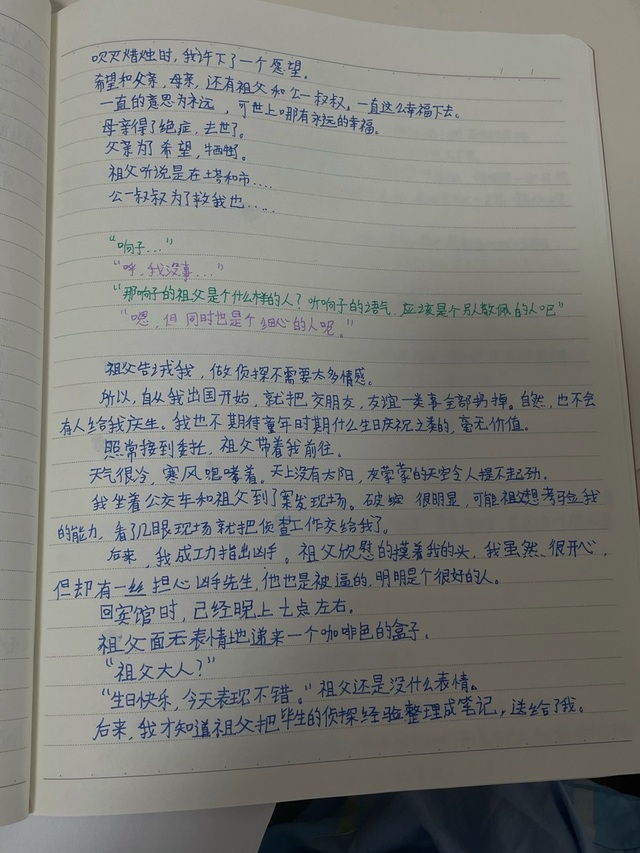 吹灭蜡烛时，我许下了一个愿望。
希望和父亲，母亲，还有祖父和公一叔叔，一直这么幸福下去。
一直的意思为永远，可世上哪有永远的幸福。
母亲得了绝症，去世了。
父亲为了希望，牺牲了。
祖父听说是在塔和市....
公一叔叔为了救我也.....
“响子...”
“呼，我没事...”
“那响子的祖父是个什么样的人？听响子的语气，应该是个另人敬佩的人吧”
“嗯，但同时也是个细心的人呢。”
祖父告戒我，做侦探不需要太多情感。
所以，自从我出国开始，就把交朋友，友谊一类事全部扔掉。自然，也不会
有人给我庆生。我也不期待童年时期什么生日庆祝之类的，毫无价值。
照常接到委托，祖父带着我前往。
天气很冷，寒风呼啸着。天上没有太阳，灰蒙蒙的天空令人提不起劲。
我坐着公交车和祖父到了案发现场。破绽很明显，可能祖父想考验我
的能力，看了几眼现场就把侦查工作交给我了。
后来，我成功指出凶手。祖父欣慰的摸着我的头，我虽然很开心，
但却有一丝担心凶手先生，他也是被逼的，明明是个很好的人。
回宾馆时，已经晚上七点左右。
祖父面无表情地递来一个咖啡色的盒子。
“祖父大人？”
“生日快乐，今天表现不错。”祖父还是没什么表情。
后来，我才知道祖父把毕生的侦探经验整理成笔记，送给了我。